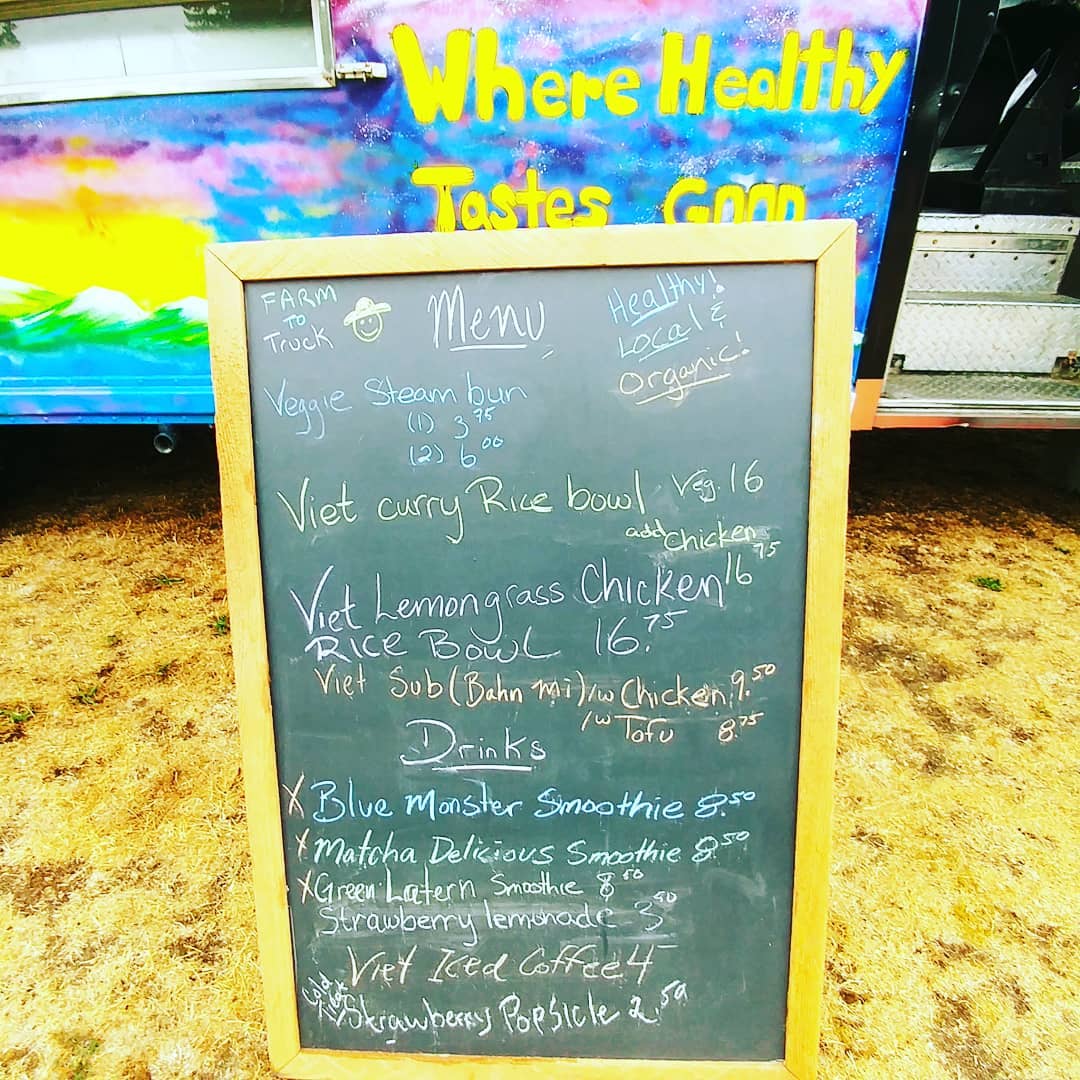 Where Healthy
Tastes Good
FARM
TO
Truck
Menu
Healthy!
Local &
Organic!
Veggie Steam bun
(1) 3.75
(2) 6.00
Viet curry Rice bowl Veg. 16
add chicken
16.75
Viet Lemongrass Chicken
Rice Bowl 16.75
Viet Sub (Bahn mi) /w Chicken 9.50
/w Tofu 8.75
Drinks
X Blue Monster Smoothie 8.50
X Matcha Delicious Smoothie 8.50
X Green Latern Smoothie 8.50
Strawberry lemonade 3.50
Viet Iced Coffee 4
Strawberry Popsicle 2.50